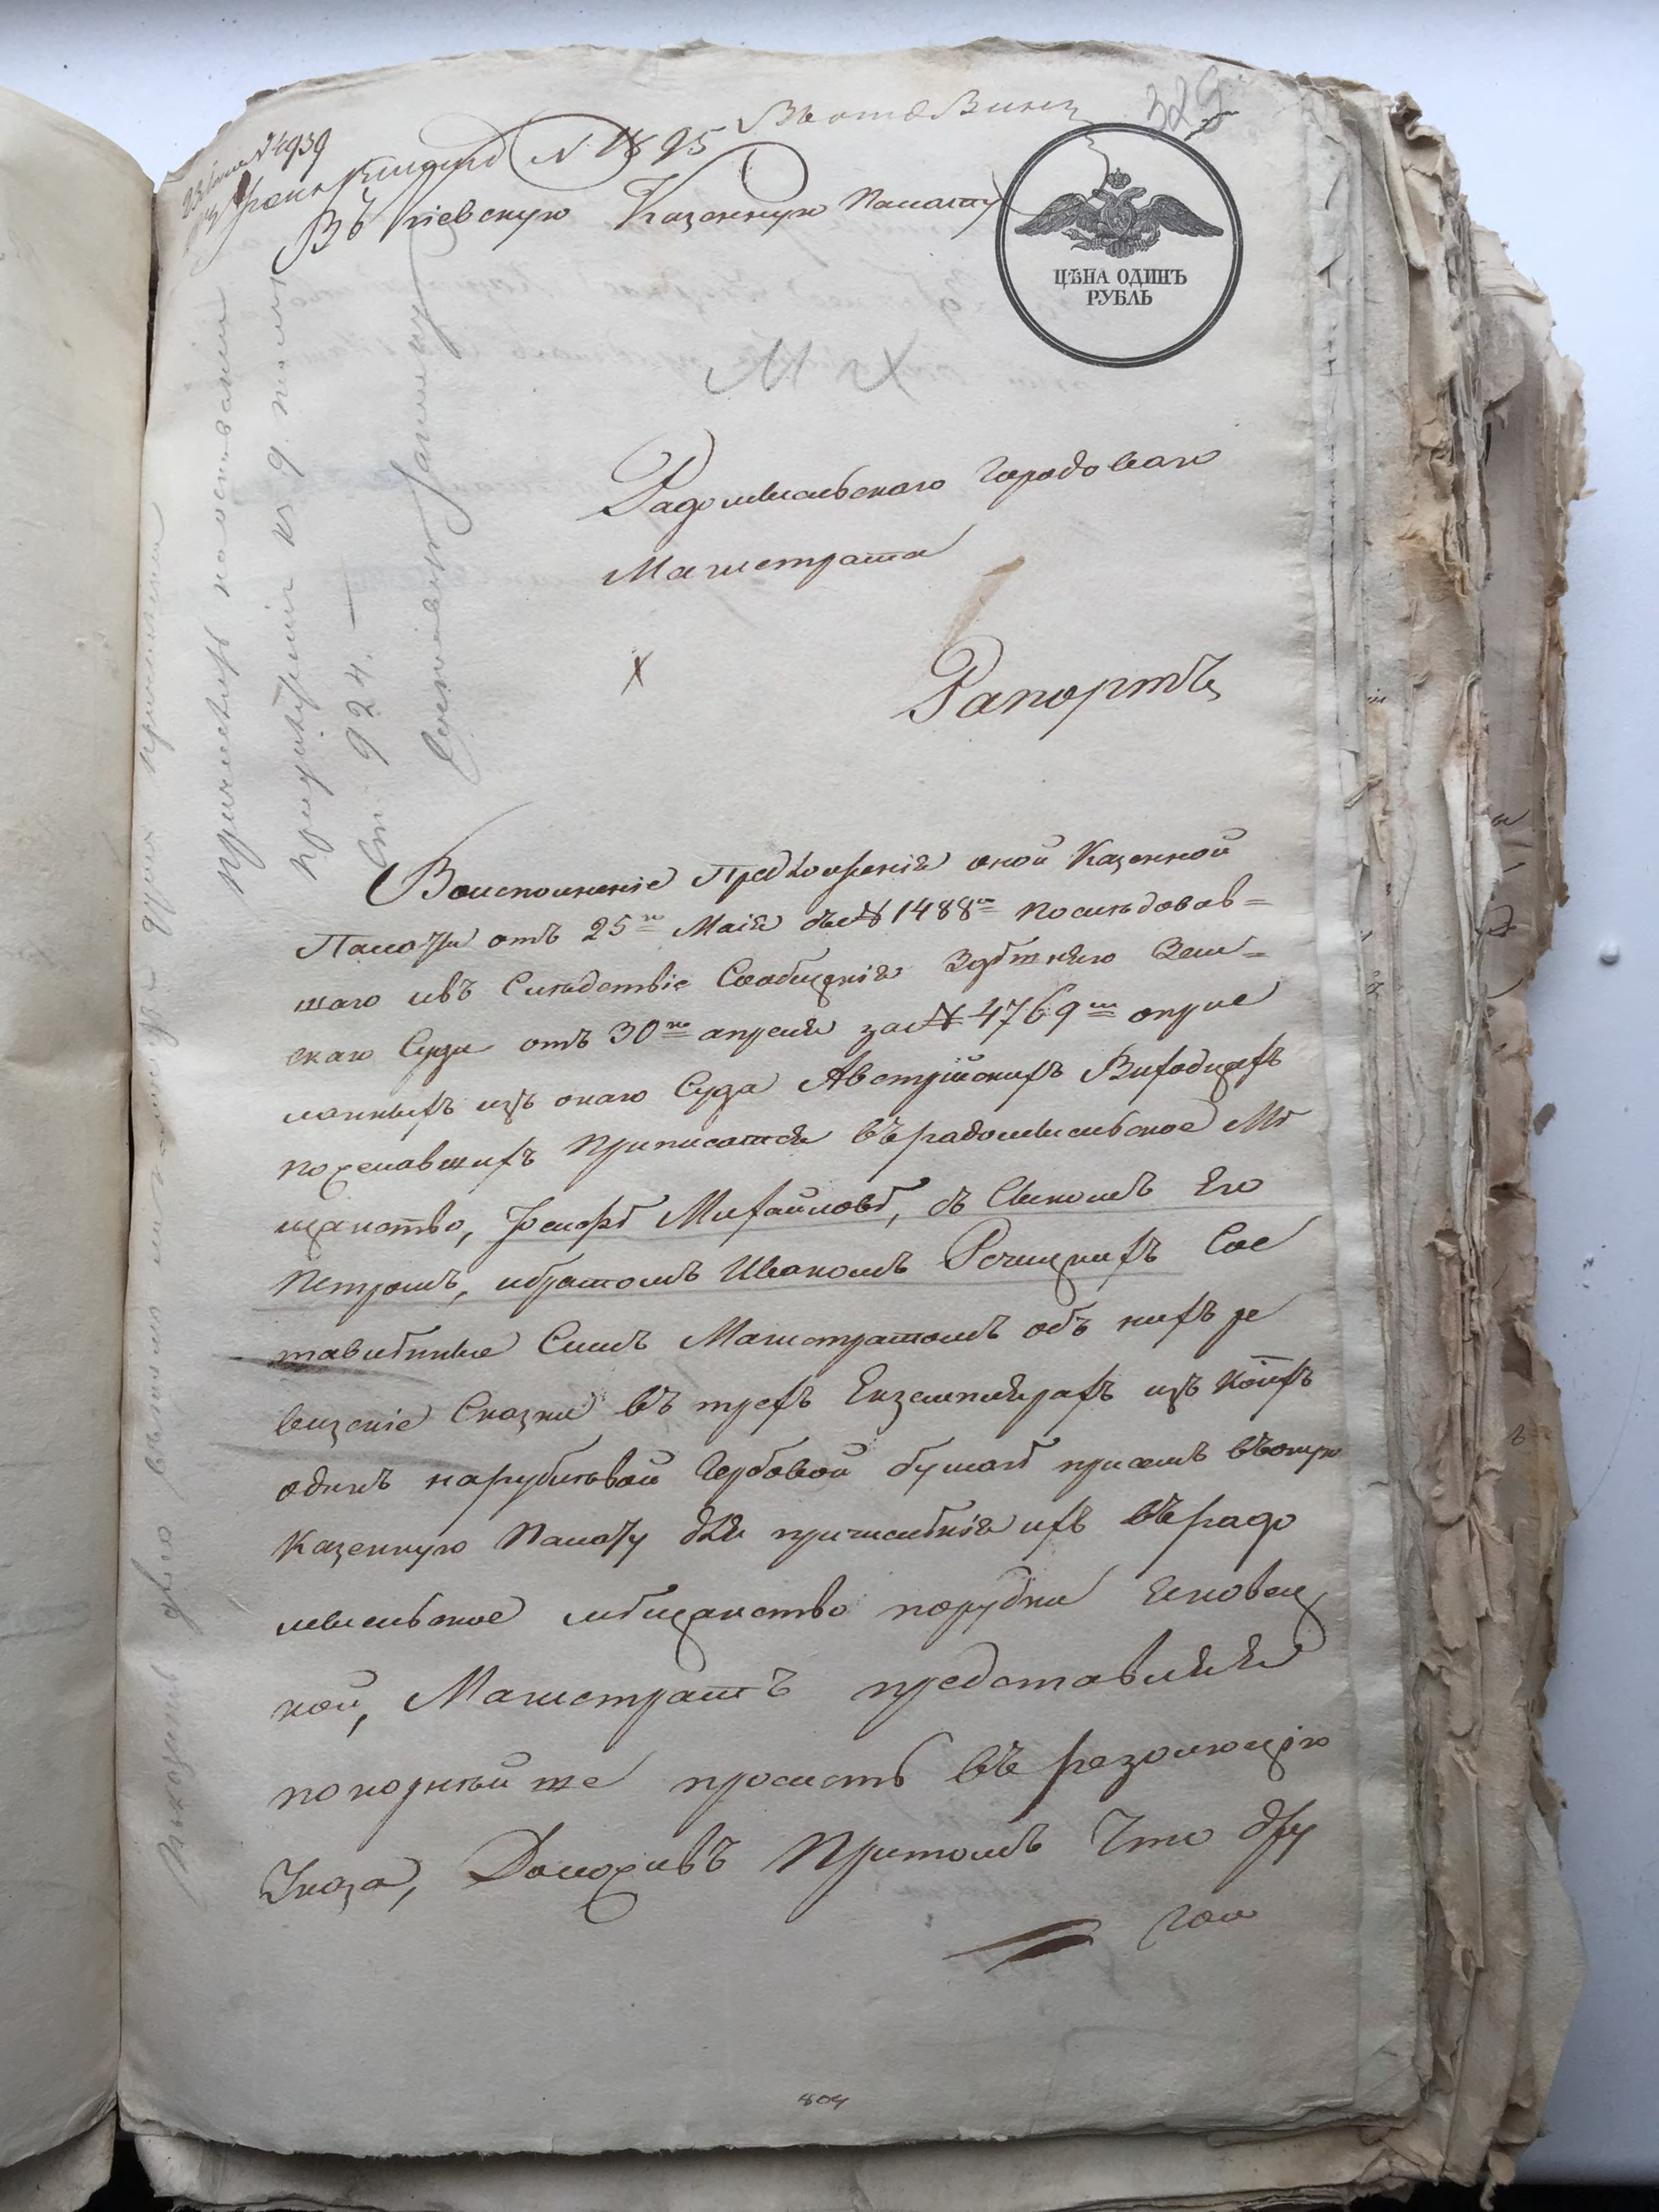 № 4939
№ 1895
Въ отд Винн
325
Въ Киевскую Казенную Палату
ЦѢНА ОДИНЪ
РУБЛЬ
Радомысльскаго Городоваго
Магистрата
Рапортъ
Воисполненіе Предложенія оной Казенной
Палаты отъ 25го Маія за № 1488м последовав=
шаго въ Следствіе Сообщенія Здѣшняго Зем=
скаго Суда отъ 30го апреля за № 4769м о присе
ланныхъ изъ онаго Суда Австрійскихъ Виходцахъ
пожелавшихъ Приписатся въ радомысльское Мѣ
щанство, Іосифѣ Михайловѣ, съ Сыномъ Его
Петромъ, ибратомъ Иваномъ Речицкихъ Сос
тавлѣнные Симъ Магистратомъ объ нихъ ре
визскіе Сказки въ трехъ Екземплярахъ изъ коихъ
одинъ нарублевой Гербовой бумагѣ при семъ въоную
Казенную Палату для причислѣнія ихъ въ радо
мысльское мѣщанство порубки Чиновец
кой, Магистратъ представляя
покорнѣйше проситъ въ резолюцію
Указа, Доложивъ Притомъ Что дру
гой
причислить на основаніи
924.
804